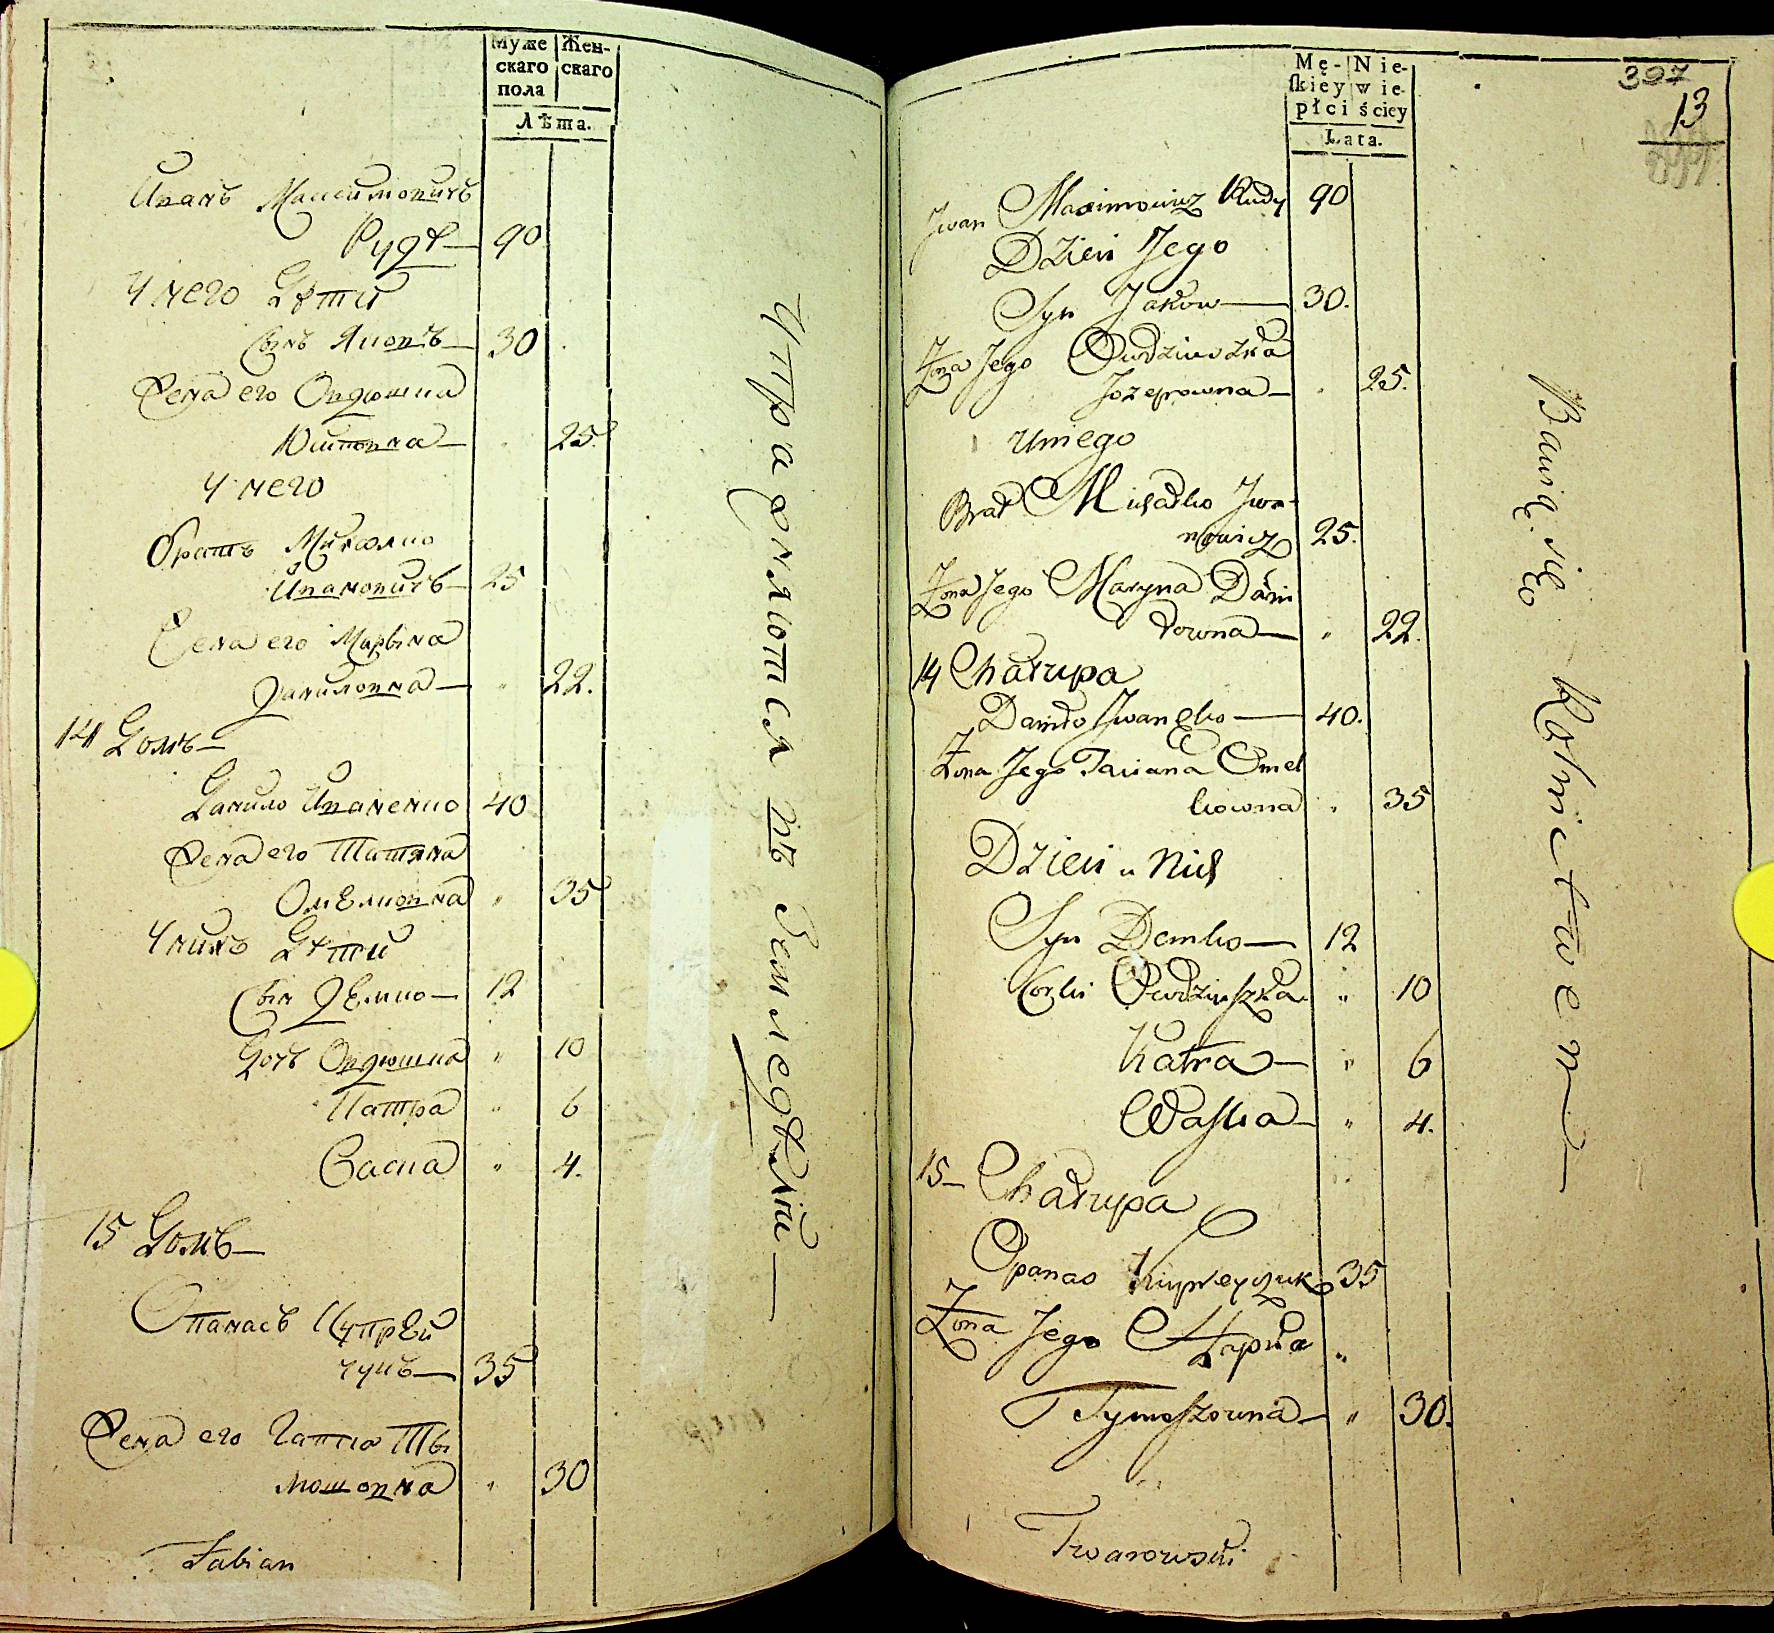 Муже Жен-
скаго скаго
пола
Лѣта.
Иванъ Максимовичъ
Рудѣ — 90
У него Дѣти
Сынъ Яковъ — 30
Жена его Овдюшка
Юзиповна — 25
У него
братъ Михалко
Ивановичъ — 25
Жена его Марына
Даниловна — " 22.
14 Домъ —
Данило Иваненко 40
Жена его Татяна
Омелковна " 35
У нихъ Дѣти
Сын Демко — 12
Дочъ Овдюшка " 10
Катра " 6
Васка " 4.
15 Домъ —
Опанасъ Купрей
чукъ — 35
Жена его Гапка Ты
мошовна " 30
Fabian
Упражняются въ Земледѣлїи —
Mę- Nie-
ſkiey wie-
płci ściey
Lata.
397
13
Jwan Maximowicz Rudy 90
Dzieci Jego
Syn Jakow — 30.
Żona Jego Owdziuszka
Jozepowna — " 25.
u niego
Brat Michałko Jwa-
nowicz 25.
Żona Jego Maryna Dani
łowna — " 22.
14 Chałupa
Daniło Jwanęko — 40.
Żona Jego Taciana Omel
kowna " 35
Dzieci u Nich
Syn Demko — 12
Corki Owdziuſzka " 10
Katra — " 6
Waſka — " 4.
15 — Chałupa
Opanas Kupreyczuk 35
Żona Jego Hapka "
Tymoſzowna — " 30.
Twarowski
Bawią się Rolnictwem —